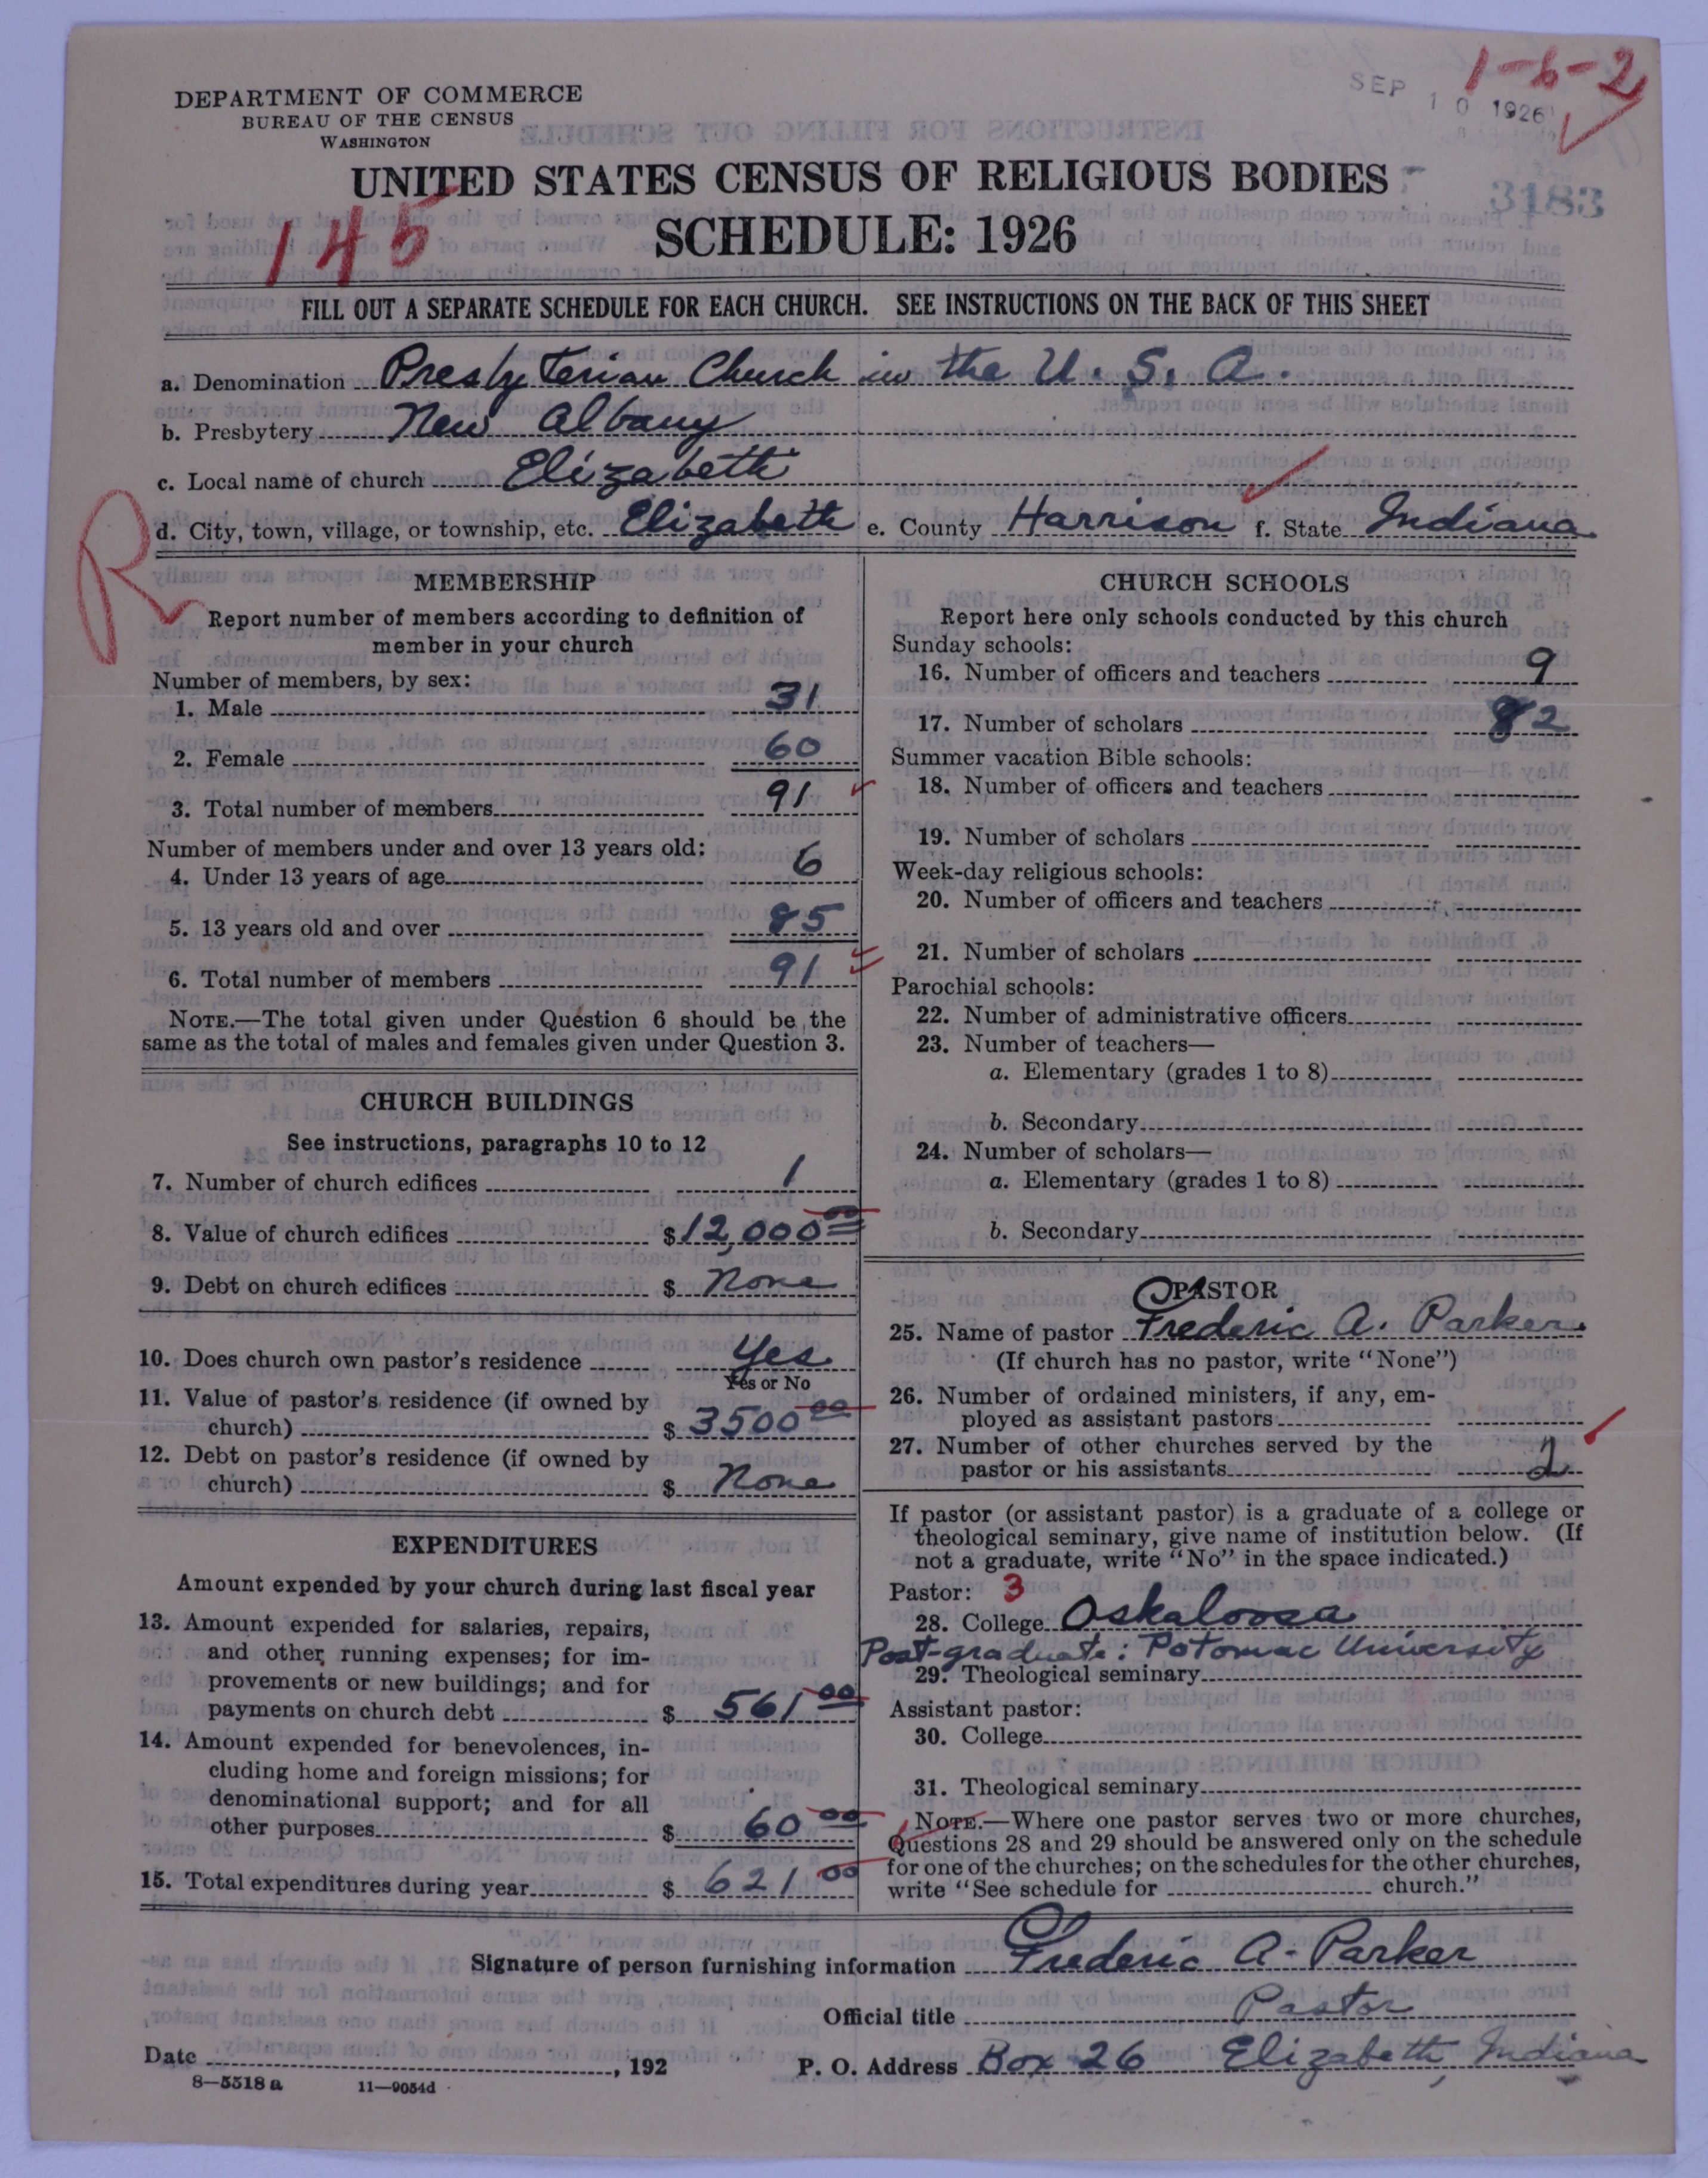 1-6-2
SEP 10 1926
DEPARTMENT OF COMMERCE
BUREAU OF THE CENSUS
WASHINGTON
3183
UNITED STATES CENSUS OF RELIGIOUS BODIES
145
SCHEDULE: 1926
FILL OUT A SEPARATE SCHEDULE FOR EACH CHURCH. SEE INSTRUCTIONS ON THE BACK OF THIS SHEET
a. Denomination Presbyterian Church in the U. S. A.
b. Presbytery New Albany
c. Local name of church Elizabeth
d. City, town, village, or township, etc. Elizabeth e. County Harrison f. State Indiana
R
MEMBERSHIP
Report number of members according to definition of
member in your church
Number of members, by sex:
1. Male 31
2. Female 60
3. Total number of members 91
Number of members under and over 13 years old:
4. Under 13 years of age 6
5. 13 years old and over 85
6. Total number of members 91
NOTE.—The total given under Question 6 should be the
same as the total of males and females given under Question 3.
CHURCH BUILDINGS
See instructions, paragraphs 10 to 12
7. Number of church edifices 1
8. Value of church edifices $12,000 00
9. Debt on church edifices $ None
10. Does church own pastor's residence Yes
Yes or No
11. Value of pastor's residence (if owned by
church) $ 3500 00
12. Debt on pastor's residence (if owned by
church) $ None
EXPENDITURES
Amount expended by your church during last fiscal year
13. Amount expended for salaries, repairs,
and other running expenses; for im-
provements or new buildings; and for
payments on church debt $ 561 00
14. Amount expended for benevolences, in-
cluding home and foreign missions; for
denominational support; and for all
other purposes $ 60 00
15. Total expenditures during year $ 621 00
CHURCH SCHOOLS
Report here only schools conducted by this church
Sunday schools:
16. Number of officers and teachers 9
17. Number of scholars 82
Summer vacation Bible schools:
18. Number of officers and teachers
19. Number of scholars
Week-day religious schools:
20. Number of officers and teachers
21. Number of scholars
Parochial schools:
22. Number of administrative officers
23. Number of teachers—
a. Elementary (grades 1 to 8)
b. Secondary
24. Number of scholars—
a. Elementary (grades 1 to 8)
b. Secondary
PASTOR
25. Name of pastor Frederic A. Parker
(If church has no pastor, write "None")
26. Number of ordained ministers, if any, em-
ployed as assistant pastors
27. Number of other churches served by the
pastor or his assistants 2
If pastor (or assistant pastor) is a graduate of a college or
theological seminary, give name of institution below. (If
not a graduate, write "No" in the space indicated.)
Pastor: 3
28. College Oskaloosa
Post-graduate: Potomac University
29. Theological seminary
Assistant pastor:
30. College
31. Theological seminary
NOTE.—Where one pastor serves two or more churches,
Questions 28 and 29 should be answered only on the schedule
for one of the churches; on the schedules for the other churches,
write "See schedule for church."
Signature of person furnishing information Frederic A. Parker
Official title Pastor
Date , 192 P. O. Address Box 26 Elizabeth, Indiana
8—5518 a 11—9054d